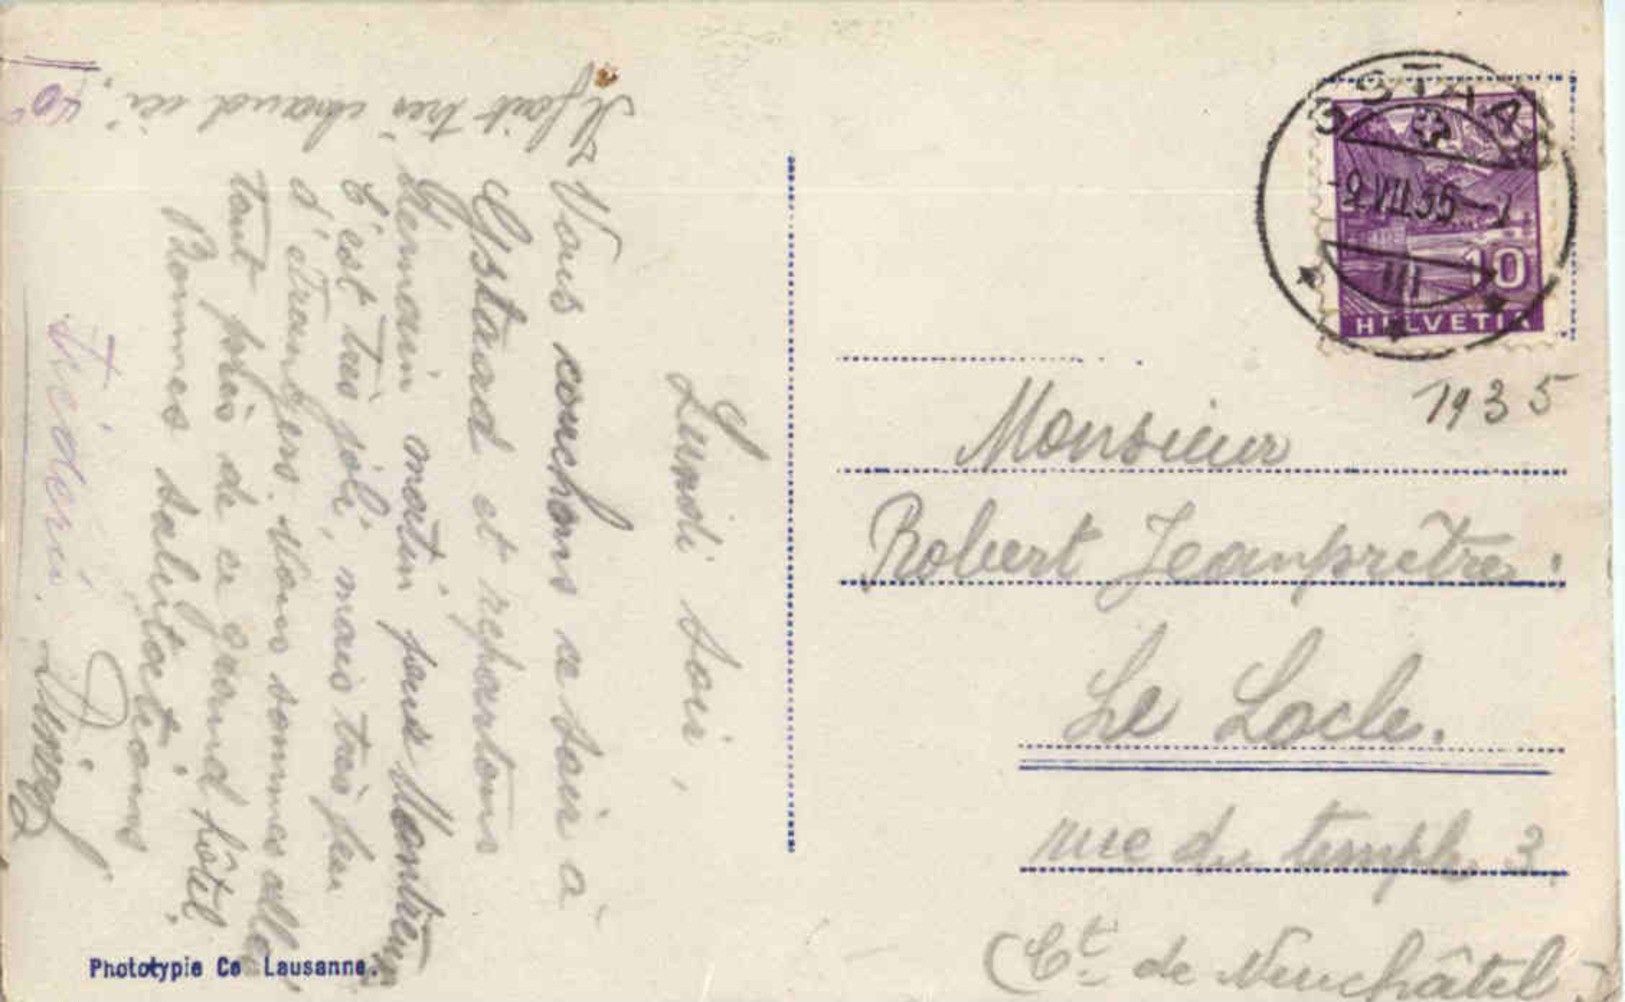 Lundi soir,
Nous couchons ce soir à
Gstaad et repartons
demain matin pour Montreux
C'est très joli, mais très peu
d'étrangers. Nous sommes allés
tout près de ce grand hôtel.
Bonnes salutations
Il fait très chaud ici.
GSTAAD
-9.VII.35-7
III
10
HELVETIA
1935
Monsieur
Robert Jeanprêtre.
Le Locle.
rue du temple 3
(Ct de Neuchâtel)
Phototypie Co Lausanne.